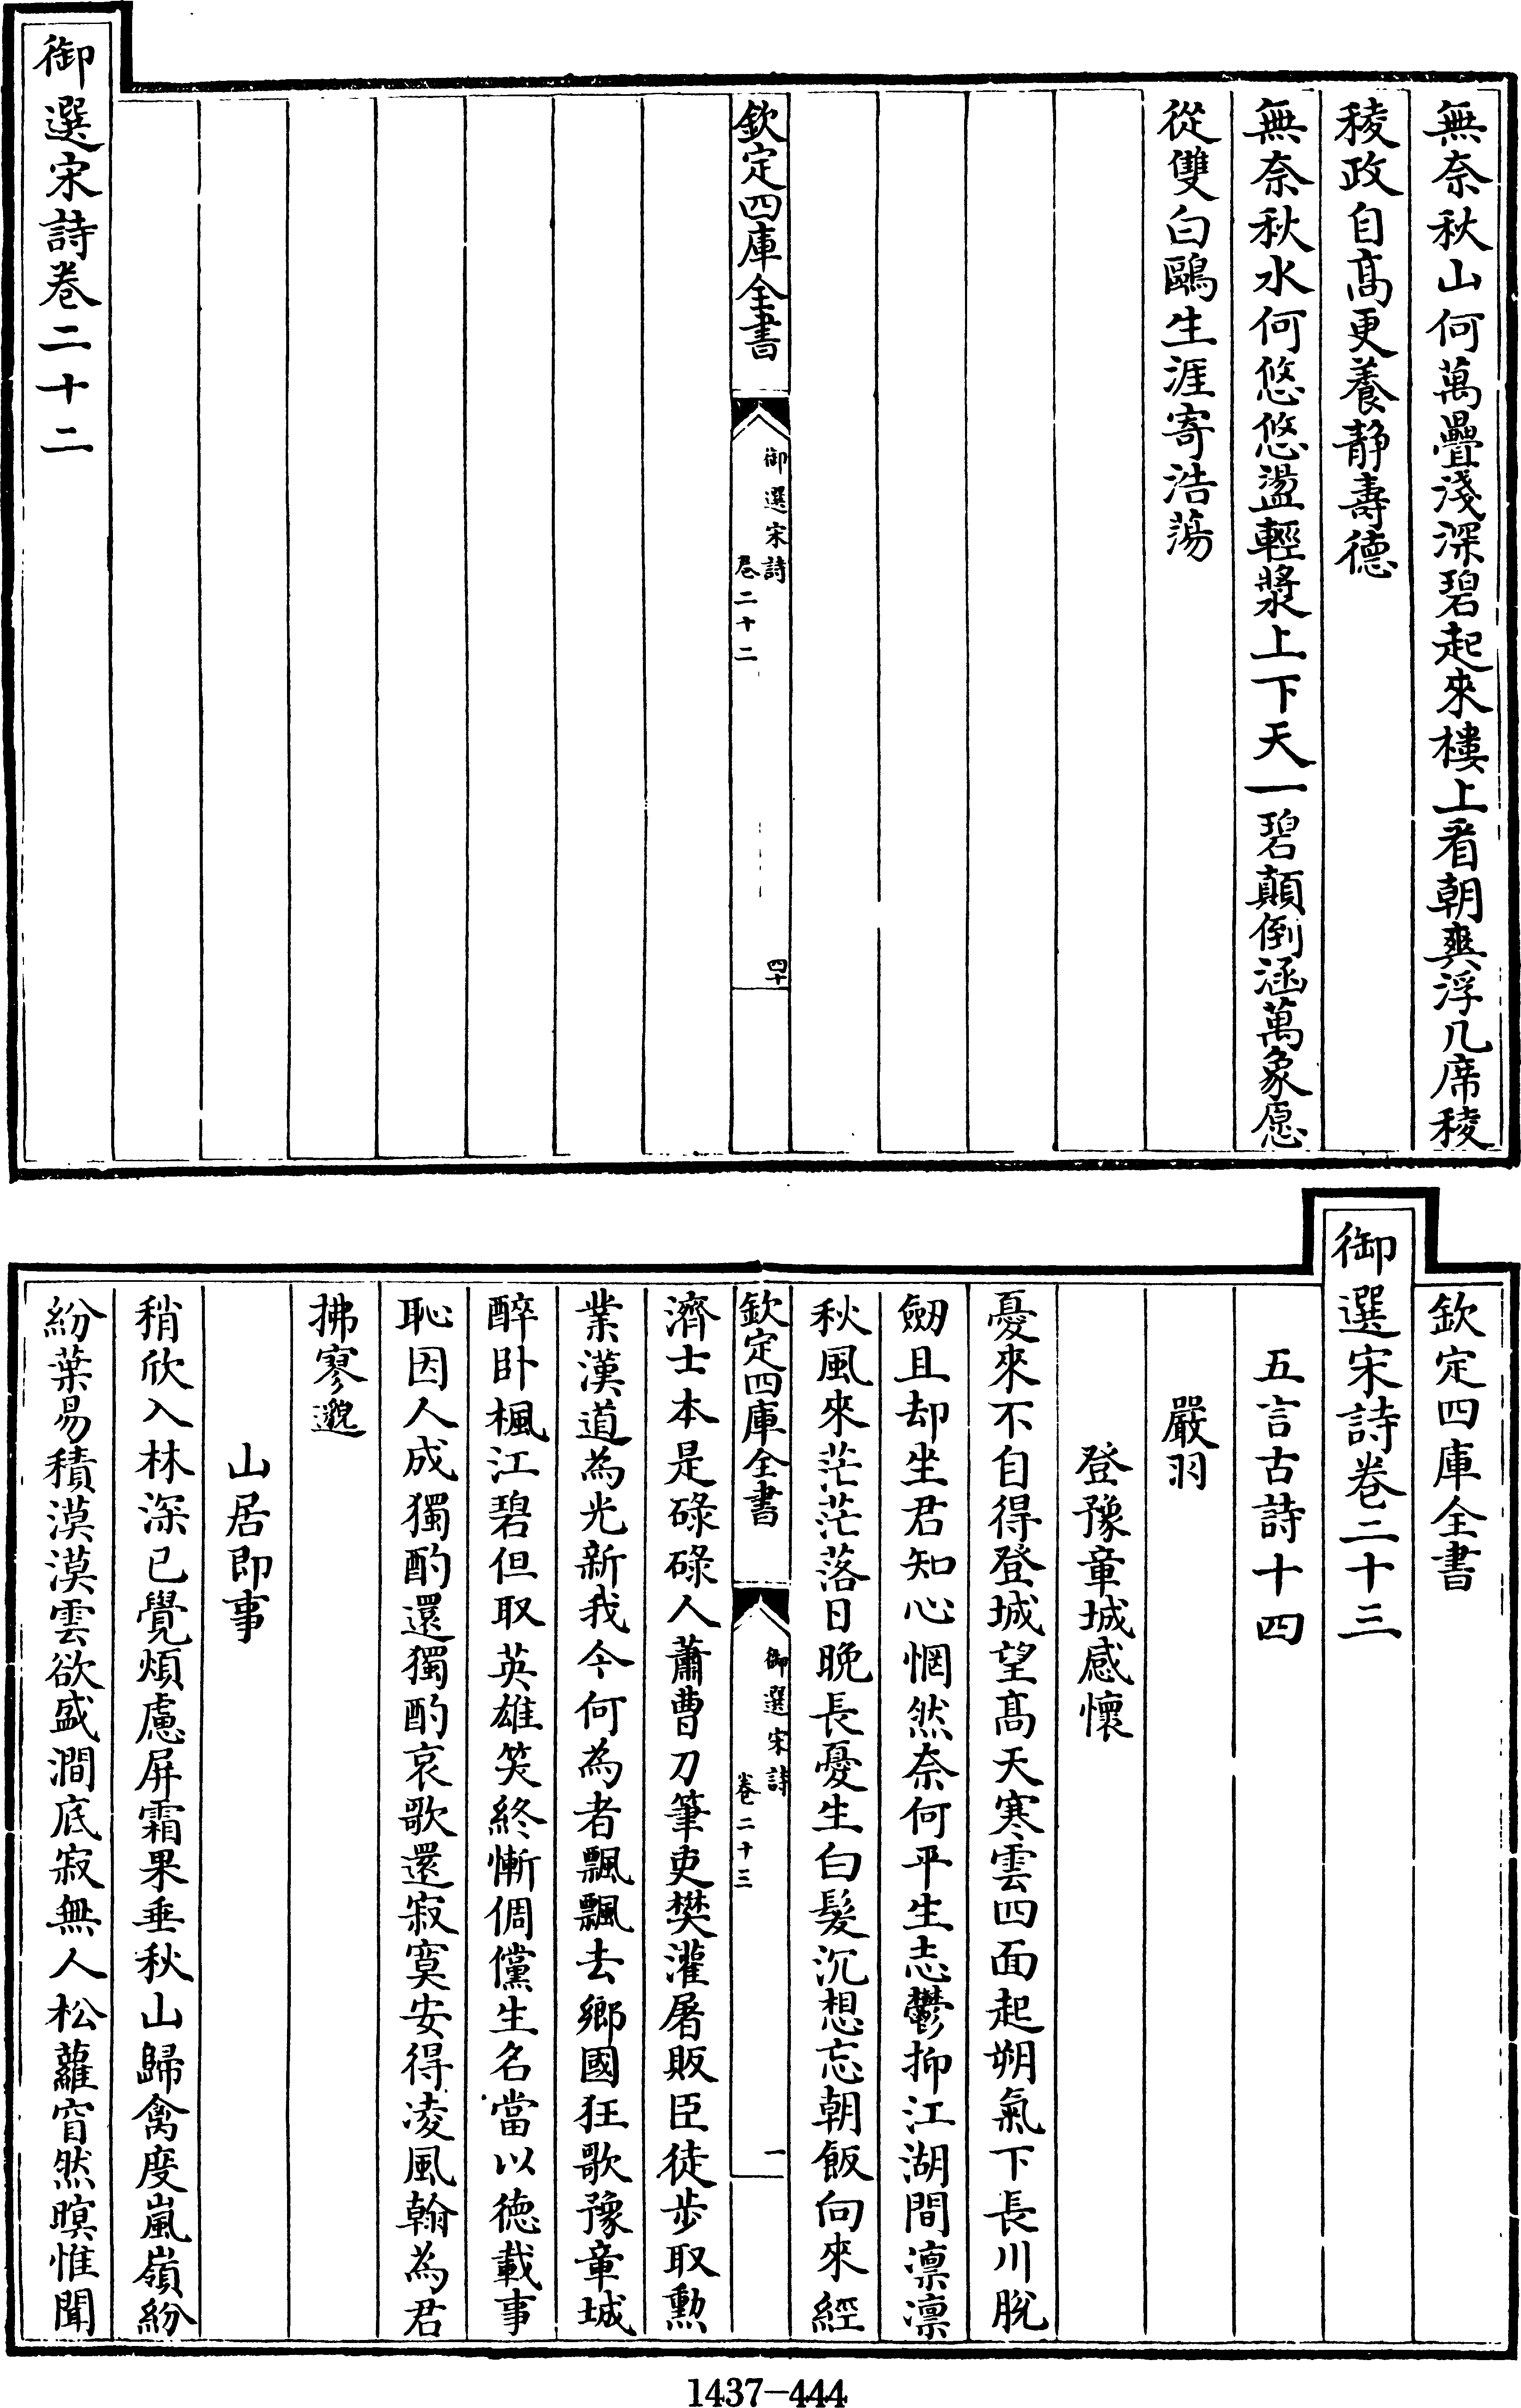 無奈秋山何萬疊淺深碧起來樓上看朝爽浮几席稜
稜政自高更養静壽德
無奈秋水何悠悠盪輕漿上下天一碧顛倒涵萬象愿
從雙白鷗生涯寄浩蕩
欽定四庫全書
御選宋詩
卷二十二
四十
御選宋詩卷二十二
欽定四庫全書
御選宋詩卷二十三
五言古詩十四
嚴羽
登豫章城感懷
憂來不自得登城望高天寒雲四面起朔氣下長川脱
劒且却坐君知心惘然奈何平生志鬱抑江湖間凛凛
秋風來茫茫落日晚長憂生白髮沉想忘朝飯向來經
欽定四庫全書
御選宋詩
卷二十三
一
濟士本是碌碌人蕭曹刀筆吏樊灌屠販臣徒步取勲
業漢道為光新我今何為者飄飄去鄉國狂歌豫章城
醉卧楓江碧但取英雄笑終慚倜儻生名當以德載事
恥因人成獨酌還獨酌哀歌還寂寞安得凌風翰為君
拂寥邈
山居即事
稍欣入林深已覺煩慮屏霜果垂秋山歸禽度嵐嶺紛
紛葉易積漠漠雲欲盛澗底寂無人松蘿窅然暝惟聞
1437-444